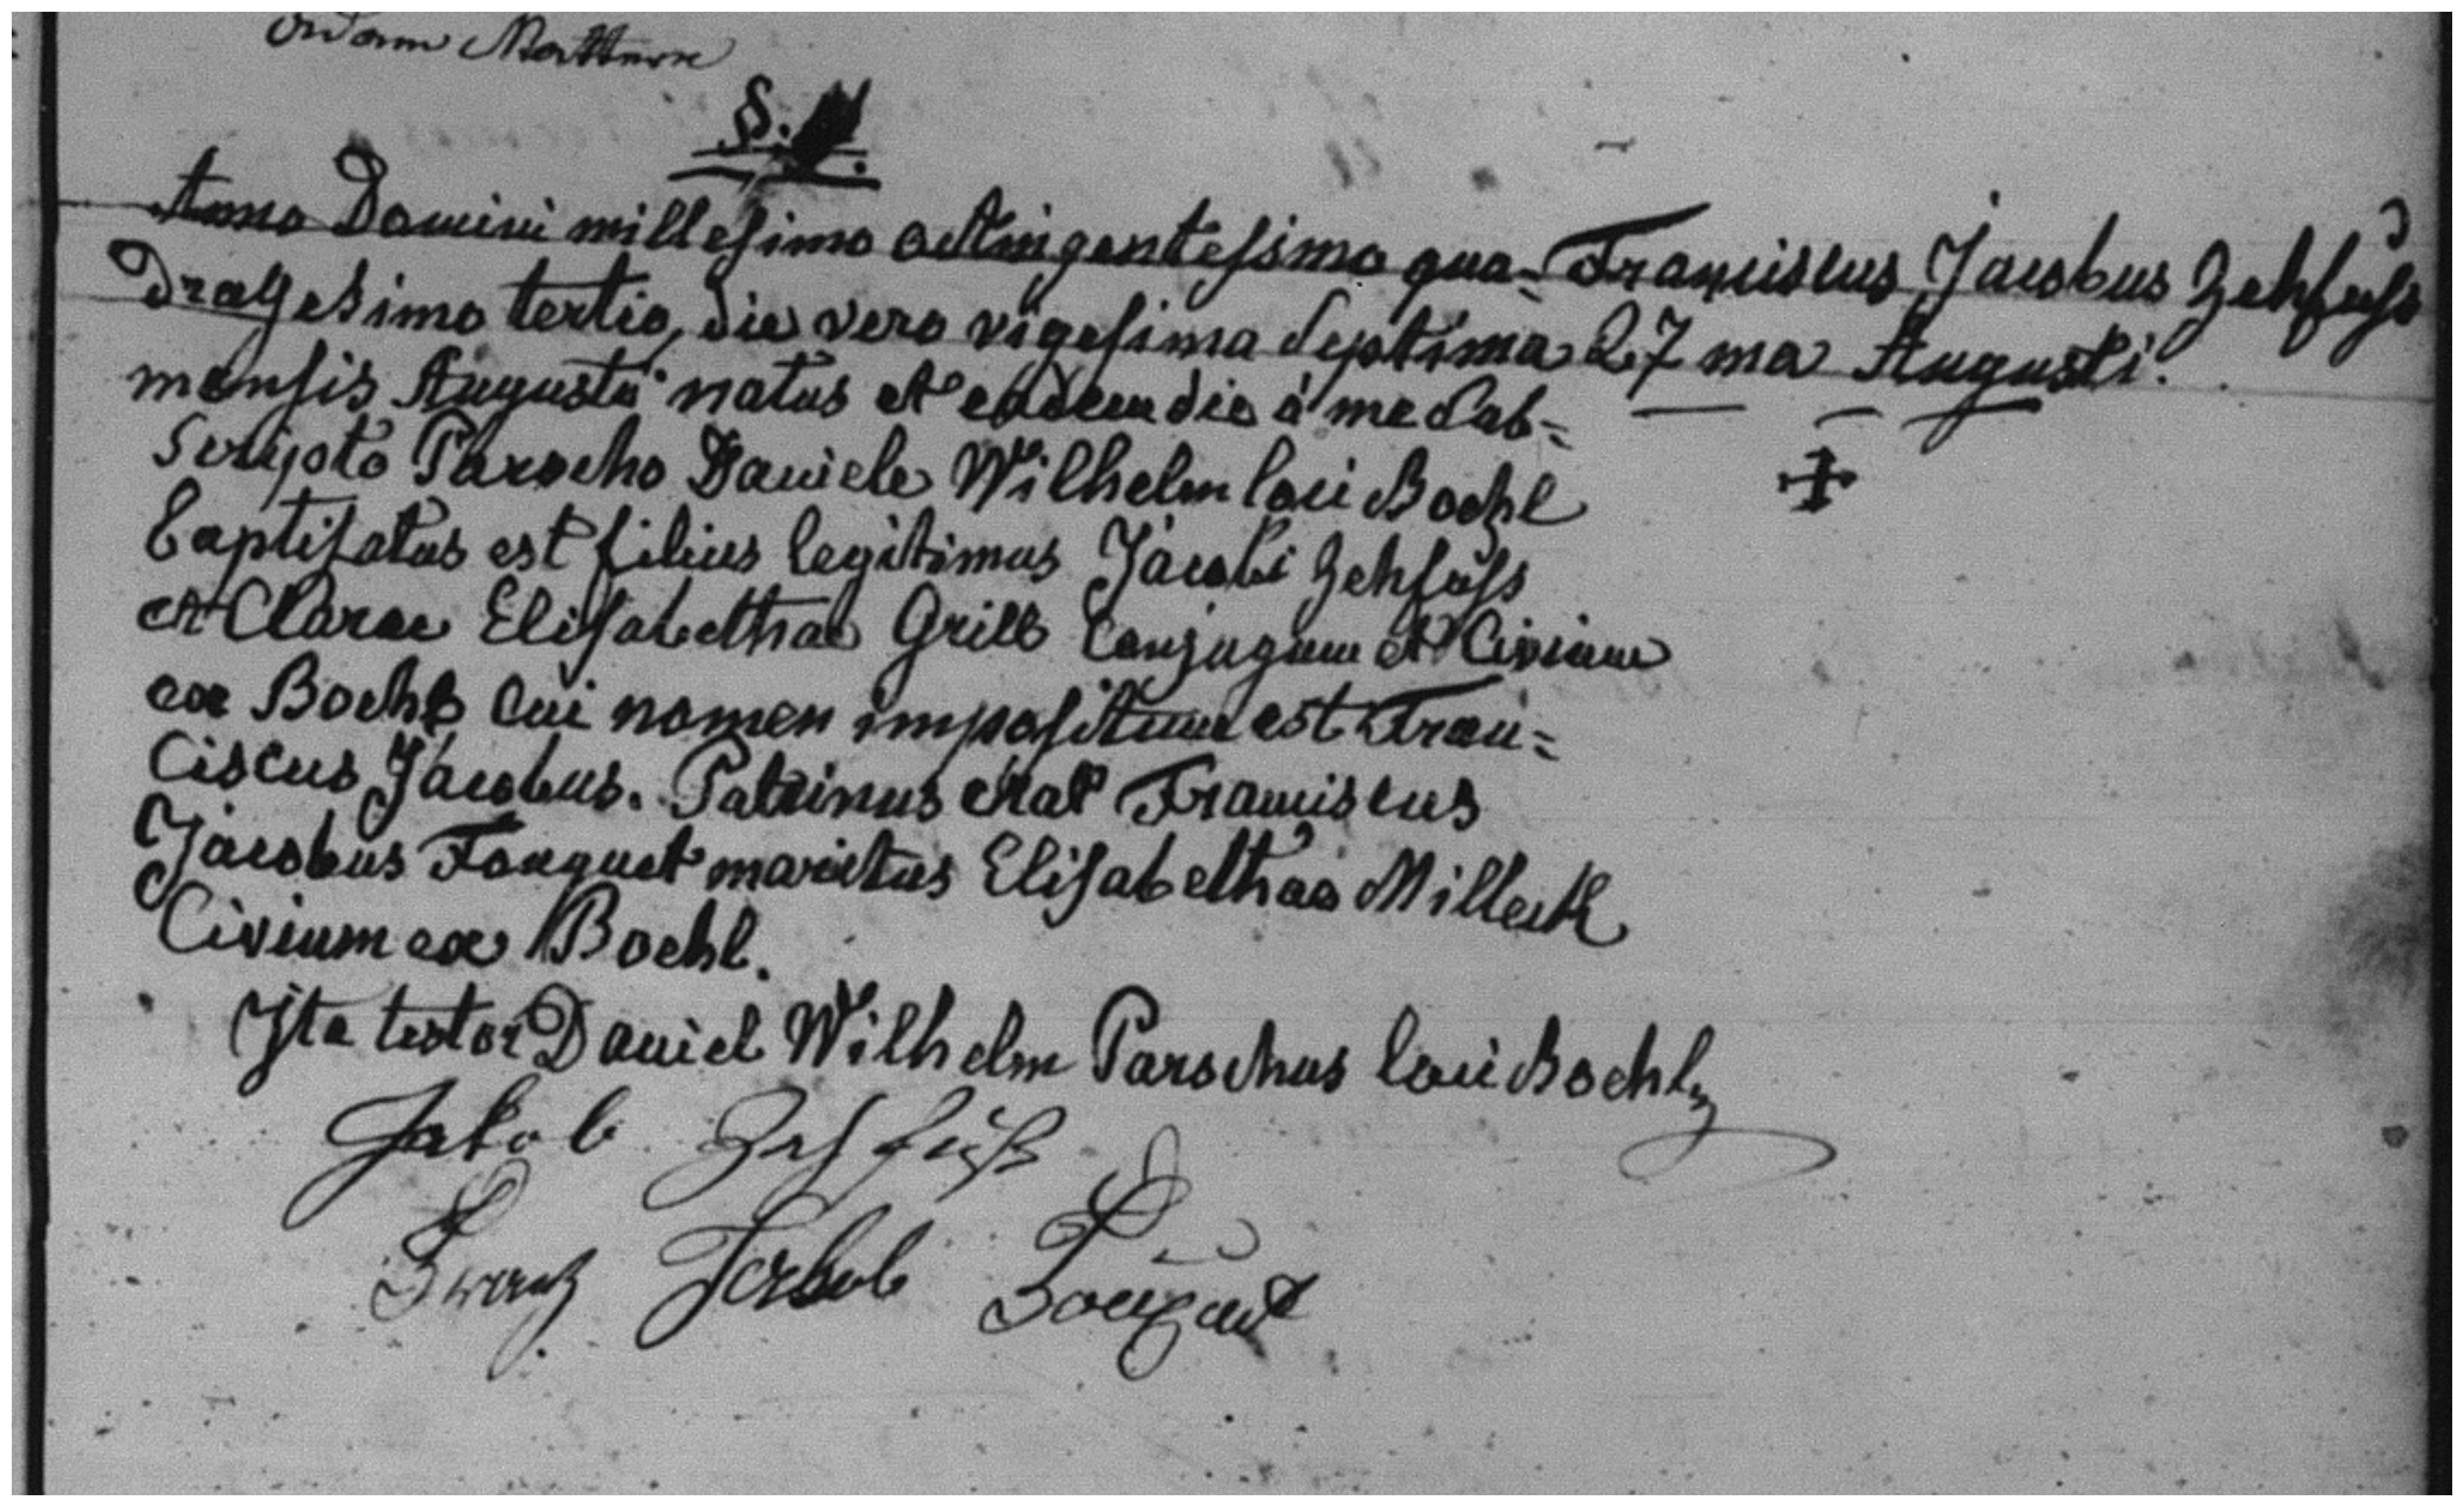 Adam Mattern
§.
Anno Domini millesimo octingentesimo qua-
dragesimo tertio, die vero vigesima septima
mensis Augusti natus et eadem die à me sub-
scripto Parocho Daniele Wilhelm loci Boehl
baptisatus est filius legitimus Jacobi Zehfuss
et Clarae Elisabethae Grill Conjugum et Civium
ex Boehl cui nomen impositum est Fran-
ciscus Jacobus. Patrinus erat Franciscus
Jacobus Fouquet maritus Elisabethae Milleck
Civium ex Boehl.
Ita testor Daniel Wilhelm Parochus loci Boehl
Jakob Zehfuß
Franz Jakob
Franciscus Jacobus Zehfuss
27 ma Augusti.